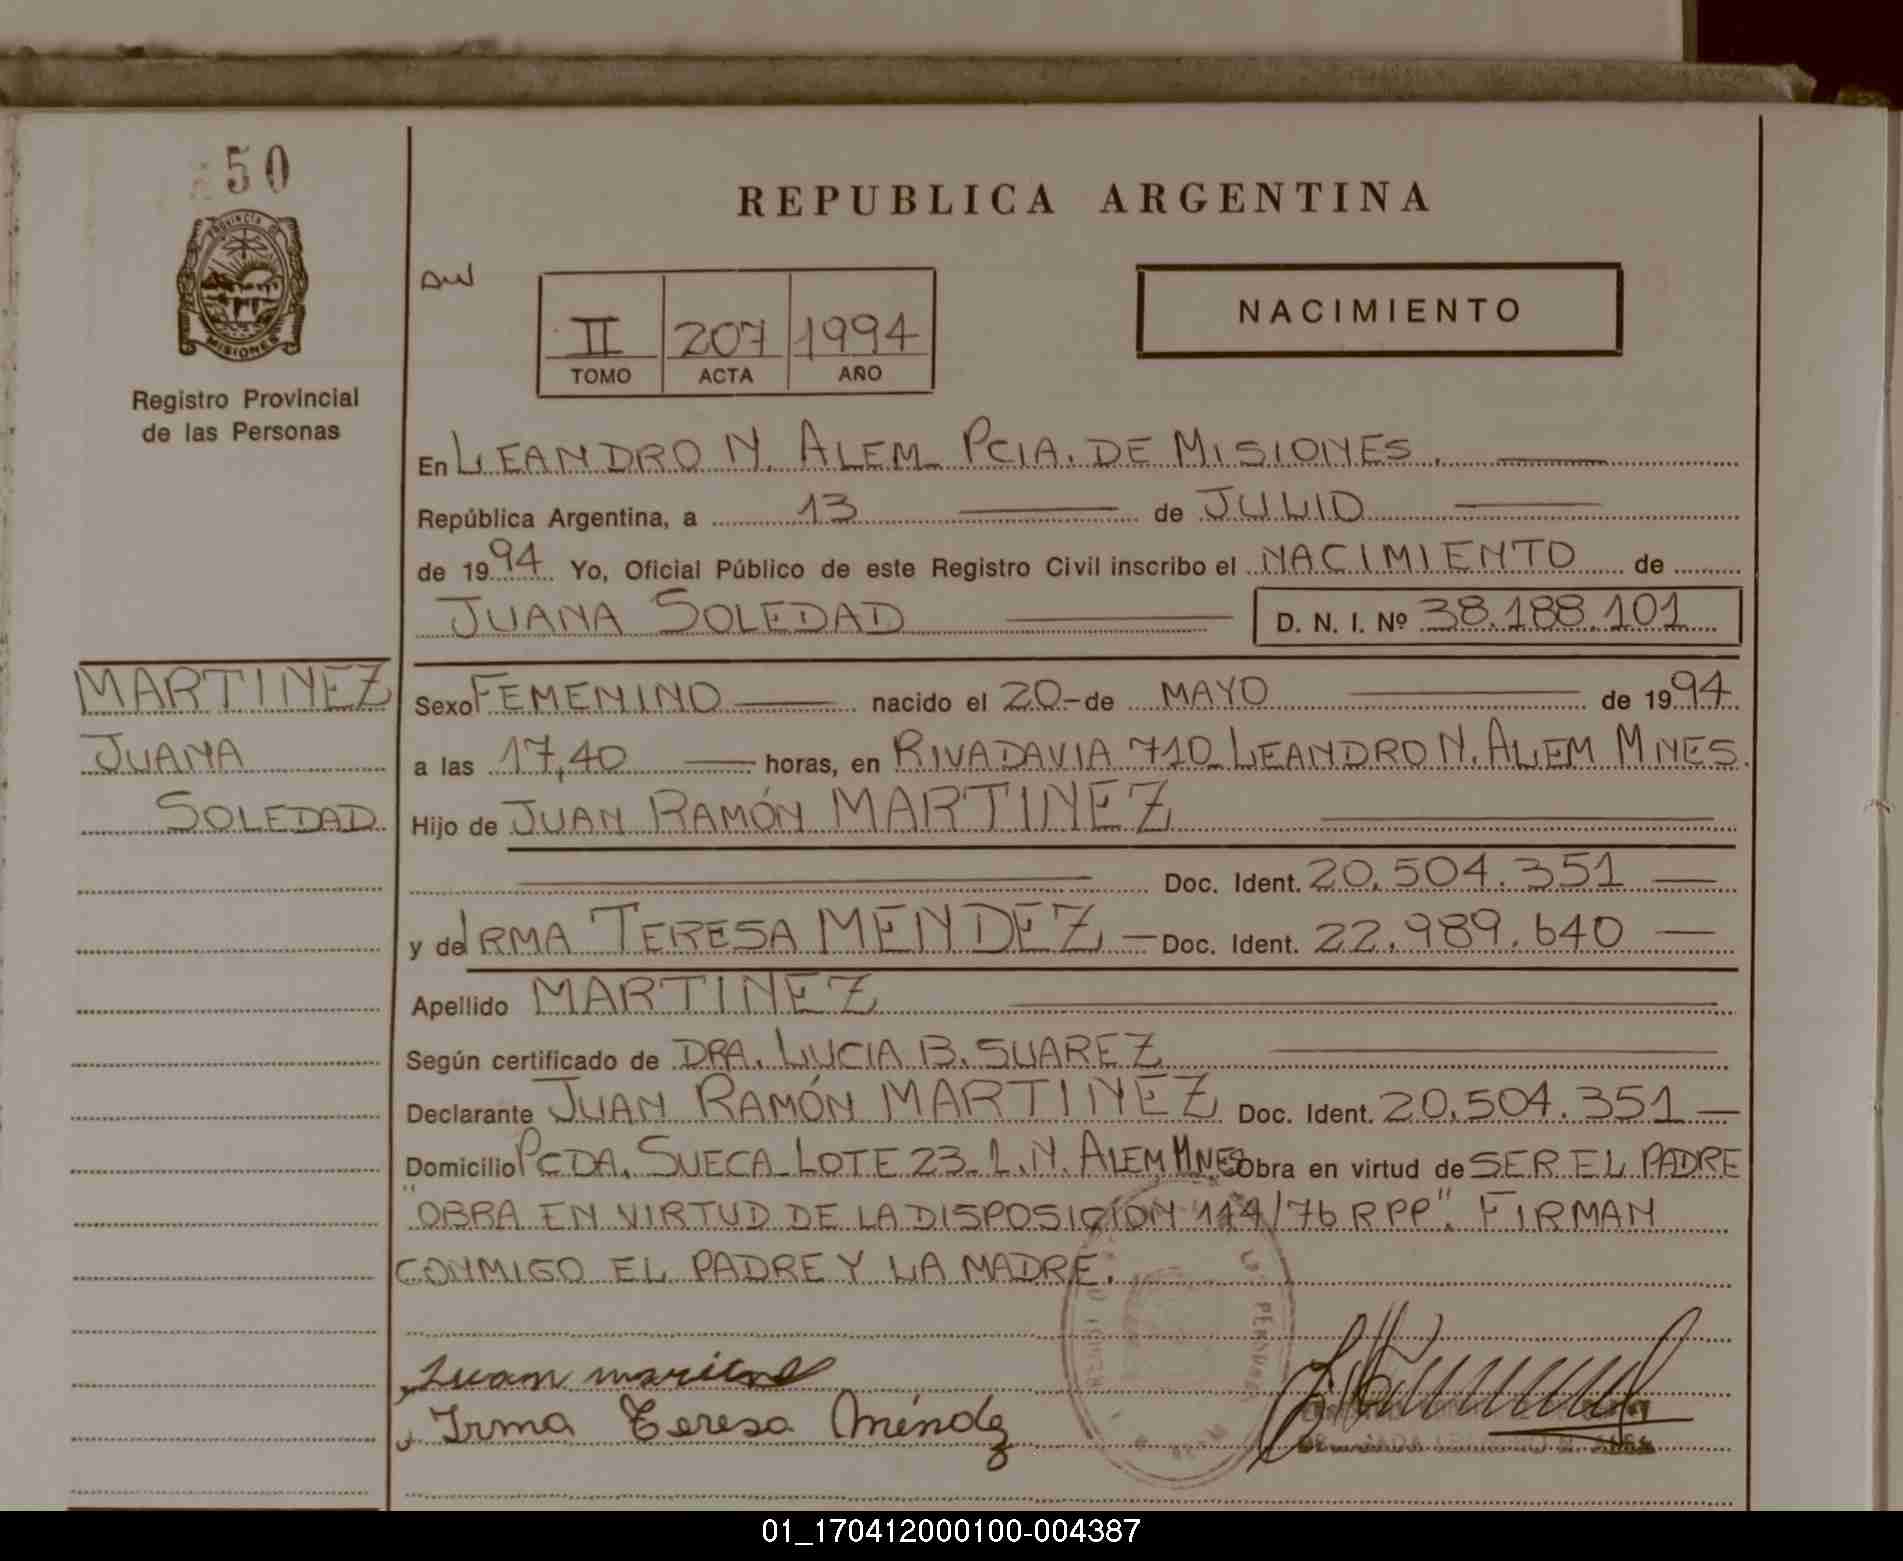 50
PROVINCIA DE
MISIONES
Registro Provincial
de las Personas
REPUBLICA ARGENTINA
II 207 1994
TOMO ACTA AÑO
NACIMIENTO
En LEANDRO N. ALEM PCIA. DE MISIONES.
República Argentina, a 13 de JULIO
de 1994 Yo, Oficial Público de este Registro Civil inscribo el NACIMIENTO de
JUANA SOLEDAD D. N. I. Nº 38.188.101
MARTINEZ
JUANA
SOLEDAD
Sexo FEMENINO nacido el 20 de MAYO de 1994
a las 17,40 horas, en RIVADAVIA 710 LEANDRO N. ALEM MNES.
Hijo de JUAN RAMÓN MARTINEZ
Doc. Ident. 20.504.351
y de IRMA TERESA MENDEZ Doc. Ident. 22.989.640
Apellido MARTINEZ
Según certificado de DRA. LUCIA B. SUAREZ
Declarante JUAN RAMÓN MARTINEZ Doc. Ident. 20.504.351
Domicilio PCDA. SUECA LOTE 23 L.N. ALEM MNES Obra en virtud de SER EL PADRE
"OBRA EN VIRTUD DE LA DISPOSICIÓN 144/76 RPP". FIRMAN
CONMIGO EL PADRE Y LA MADRE.
Juan
Irma Teresa Méndez
01_170412000100-004387